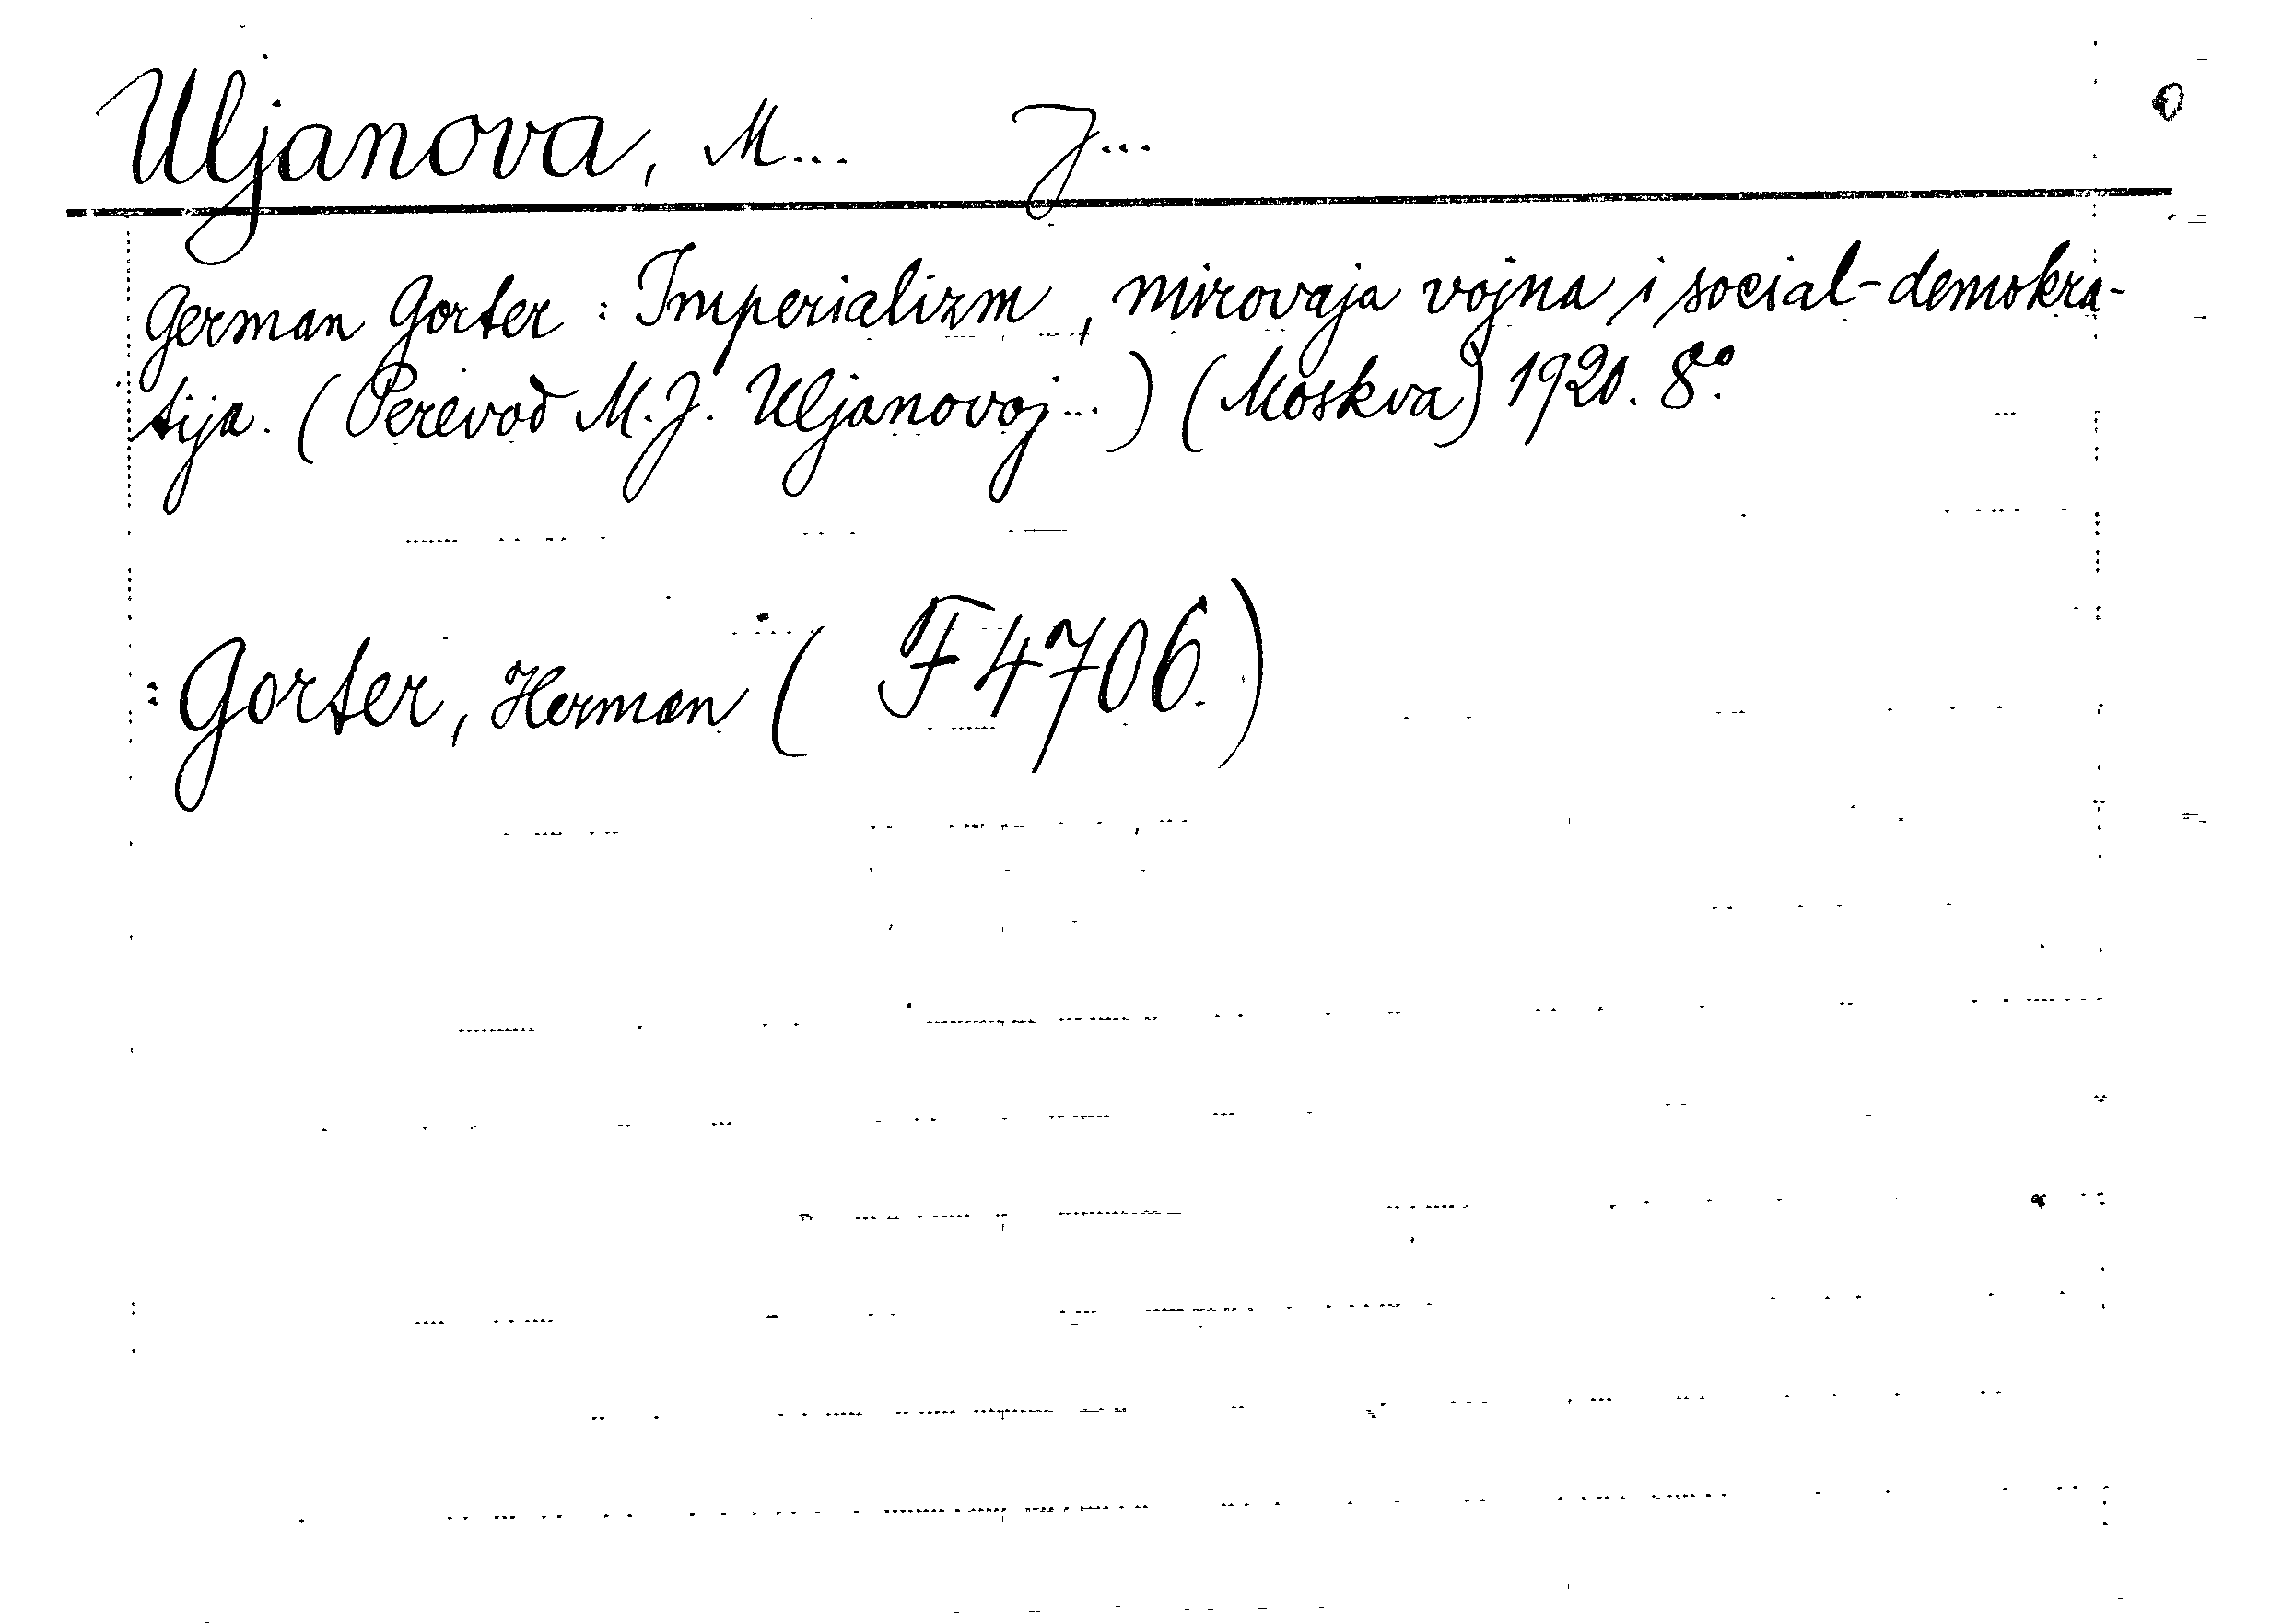 Uljanova, M... J...
German Gorter: Imperializm, mirovaja vojna i social-demokra-
tija. (Perevod M. J. Uljanovoj...) (Moskva) 1920. 8°.
: Gorter, Herman ( F 4706.)